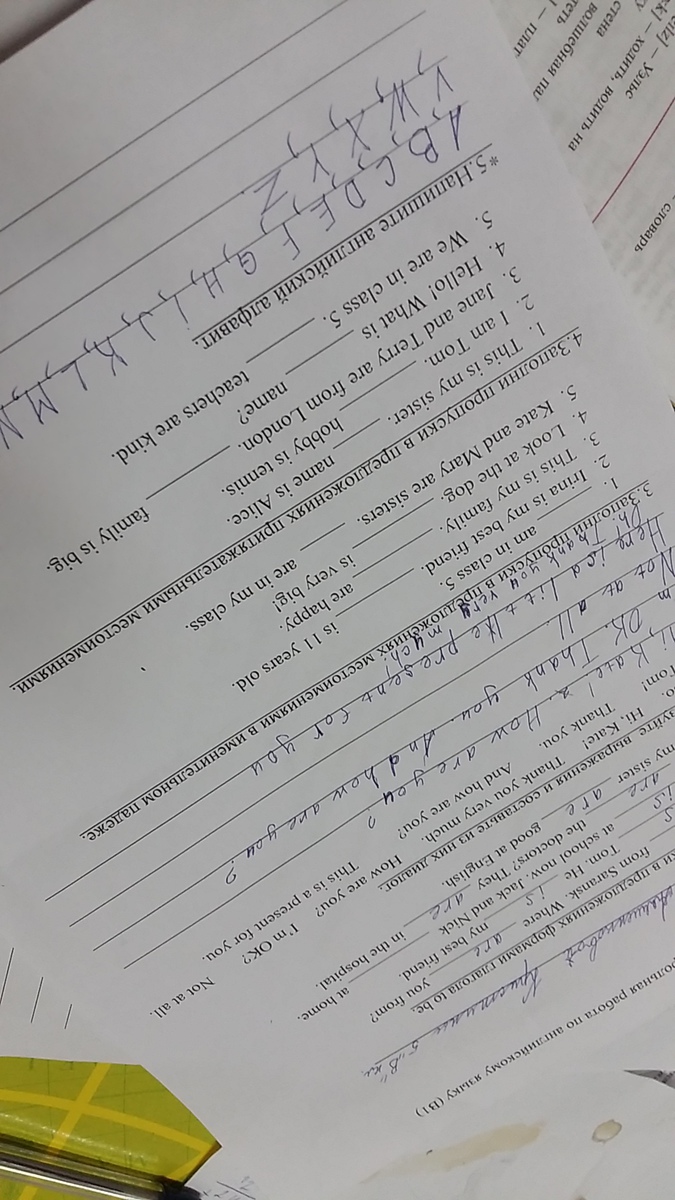 рольная работа по английскому языку (В1)
Кристины 5 "В" кл.
в предложениях формами глагола to be.
from Saransk. Where are you from?
Tom. He is my best friend.
at school now. Jack and Nick at home.
the doctors? They are in the hospital.
my sister are good at English.
зуйте выражения и составьте из них диалог.
Hi, Kate! Thank you very much. How are you? I'm OK? Not at all.
Tom! Thank you. And how are you? This is a present for you.
Hi, Kate! How are you?
I'm OK. Thank you. And how are you?
Here is a little present for you
Oh! Thank you very much!
Not at all.
3.Заполни пропуски в предложениях местоимениями в именительном падеже.
1. ____ am in class 5.
2. Irina is my best friend. ____ is 11 years old.
3. This is my family. ____ are happy.
4. Look at the dog. ____ is very big!
5. Kate and Mary are sisters. ____ are in my class.
4.Заполни пропуски в предложениях притяжательными местоимениями.
1. This is my sister. ____ name is Alice.
2. I am Tom. ____ hobby is tennis.
3. Jane and Terry are from London. ____ family is big.
4. Hello! What is ____ name?
5. We are in class 5. ____ teachers are kind.
*5.Напишите английский алфавит.
A, B, C, D, E, F, G, H, i, J, K, L, M, N
V, W, X, Y, Z.
Уэльс
ходить, водить на
стена
волшебная па
плат
словарь